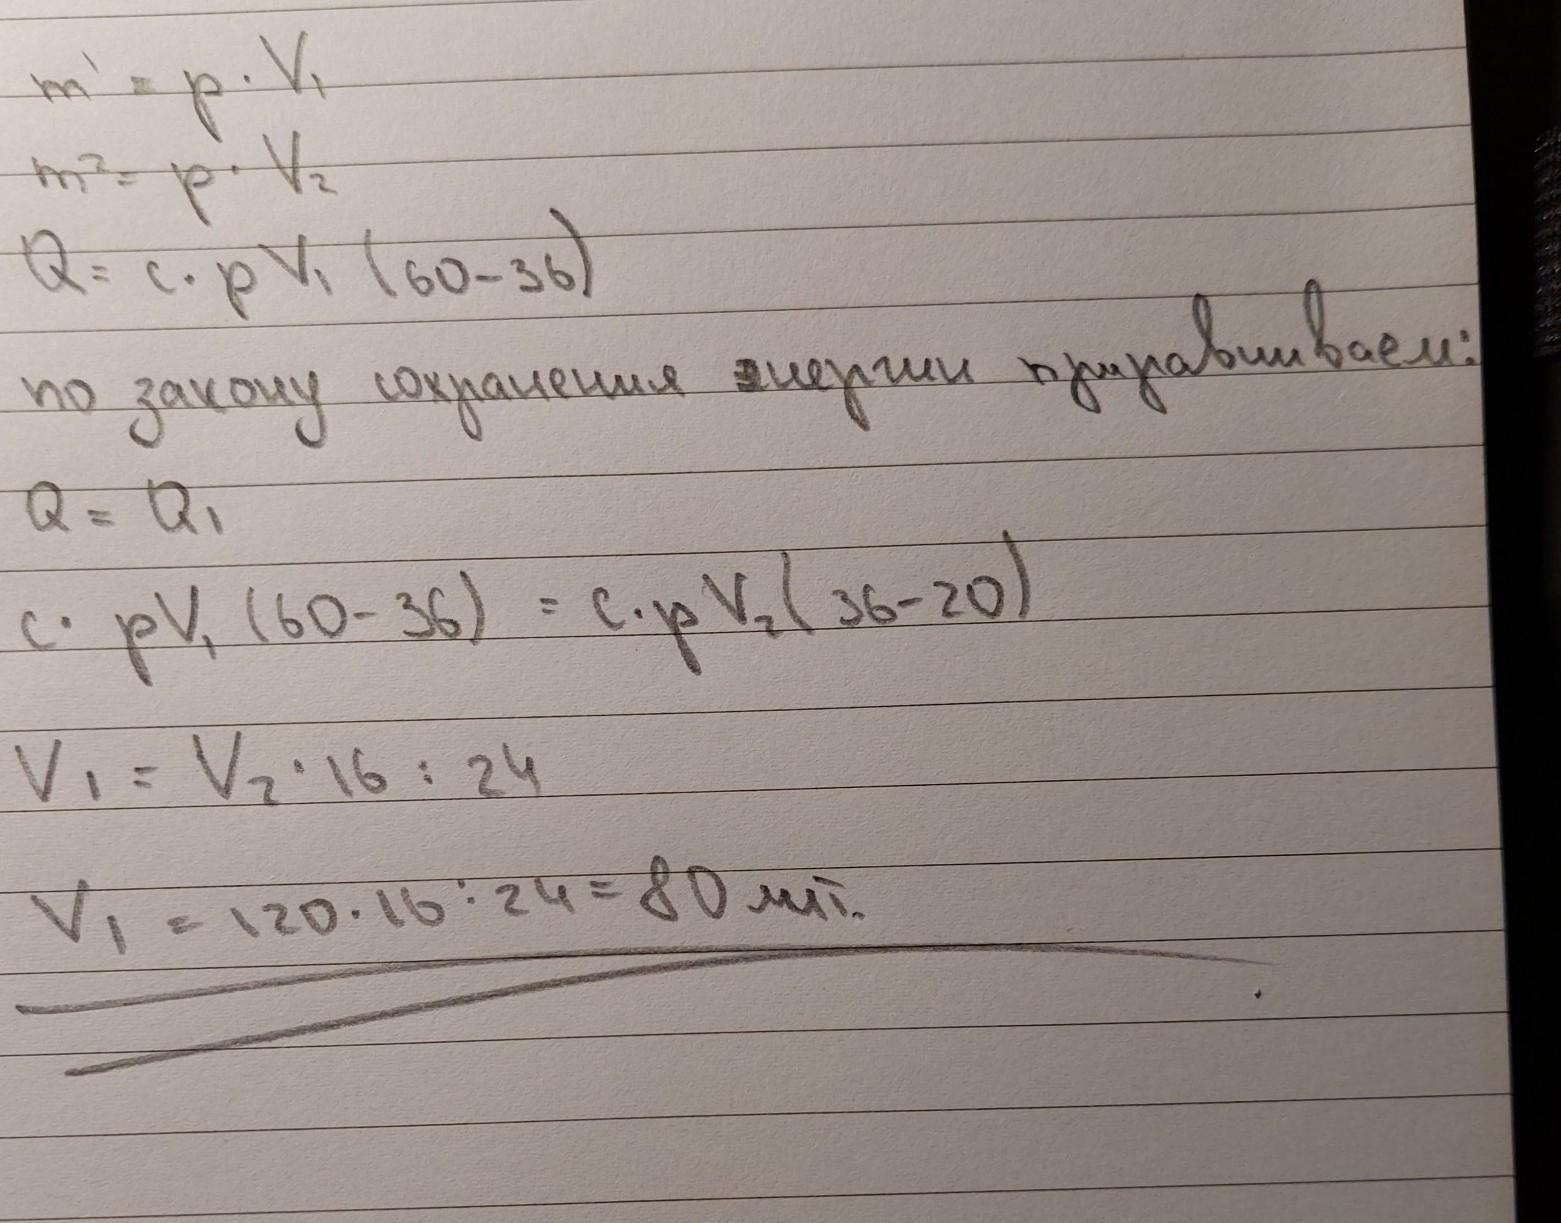 m¹ = p · V₁
m² = p · V₂
Q = c · p V₁ (60-36)
по закону сохранения энергии приравниваем:
Q = Q₁
c · pV₁ (60-36) = c · p V₂ (36-20)
V₁ = V₂ · 16 : 24
V₁ = 120 · 16 : 24 = 80 мл.